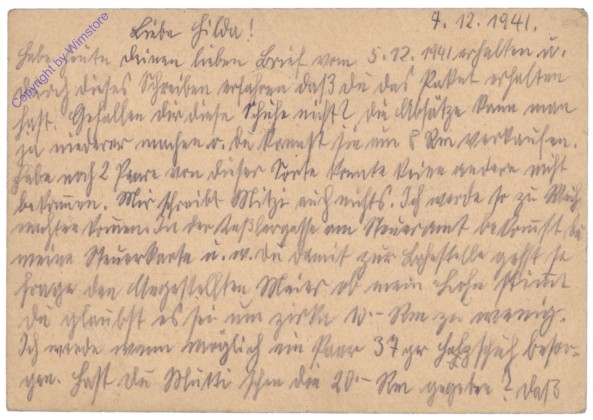 Liebe Hilda! 7.12.1941.
Habe heute Deinen lieben Brief vom 5.12.1941 erhalten u.
durch dieses Schreiben erfahren daß Du das Paket erhalten
hast. Gefallen dir diese Schuhe nicht? Die Absätze kann man
ja niederer machen o. Du kannst sie um 8 Rm verkaufen.
Habe noch 2 Paare von dieser Sorte konnte keine andere nicht
bekommen. Mir schreibt Mitzi auch nichts. Ich werde so zu Weih
nachten kommen. In der am Steueramt bekommst du
meine Steuerkarte u. w. Du damit zur Lohnstelle gehst so
frage den Angestellten Meier ob mein Lohn stimmt
Du glaubst es sei um zirka 10.- Rm zu wenig.
Ich werde wenn möglich ein Paar 37 gr besor-
gen. Hast Du Mutti schon die 20.- Rm gegeben? Daß
Copyright by Winstore